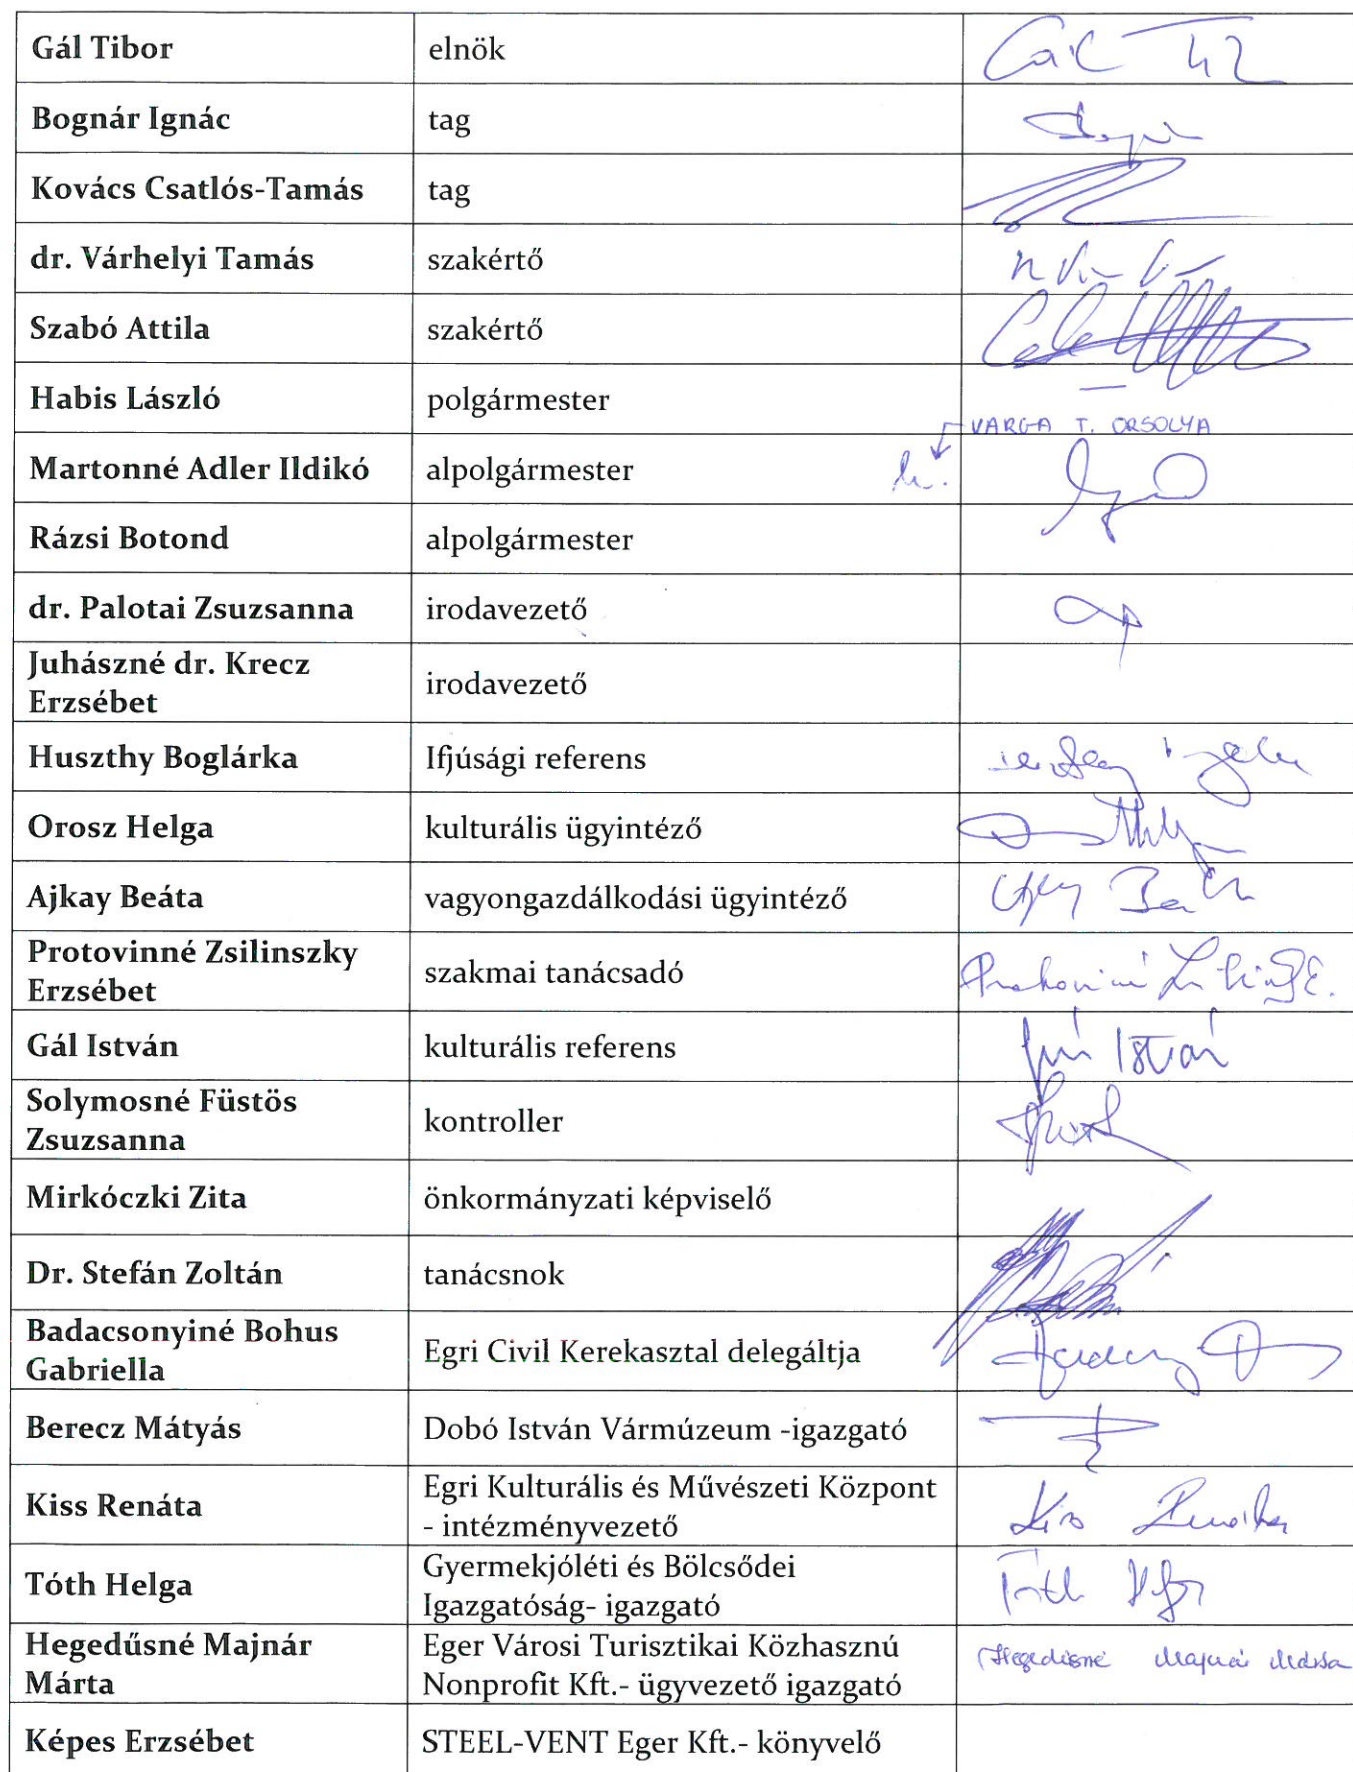 Gál Tibor elnök
Bognár Ignác tag
Kovács Csatlós-Tamás tag
dr. Várhelyi Tamás szakértő
Szabó Attila szakértő
Habis László polgármester
VARGA T. ORSOLYA
Martonné Adler Ildikó alpolgármester
Rázsi Botond alpolgármester
dr. Palotai Zsuzsanna irodavezető
Juhászné dr. Krecz
Erzsébet
irodavezető
Huszthy Boglárka Ifjúsági referens
Orosz Helga kulturális ügyintéző
Ajkay Beáta vagyongazdálkodási ügyintéző
Protovinné Zsilinszky
Erzsébet
szakmai tanácsadó
Gál István kulturális referens István
Solymosné Füstös
Zsuzsanna
kontroller
Mirkóczki Zita önkormányzati képviselő
Dr. Stefán Zoltán tanácsnok
Badacsonyiné Bohus
Gabriella
Egri Civil Kerekasztal delegáltja
Berecz Mátyás Dobó István Vármúzeum -igazgató
Kiss Renáta
Egri Kulturális és Művészeti Központ
- intézményvezető
Kiss Renáta
Tóth Helga
Gyermekjóléti és Bölcsődei
Igazgatóság- igazgató
Tóth Helga
Hegedűsné Majnár
Márta
Eger Városi Turisztikai Közhasznú
Nonprofit Kft.- ügyvezető igazgató
Hegedűsné Majnár Márta
Képes Erzsébet STEEL-VENT Eger Kft.- könyvelő